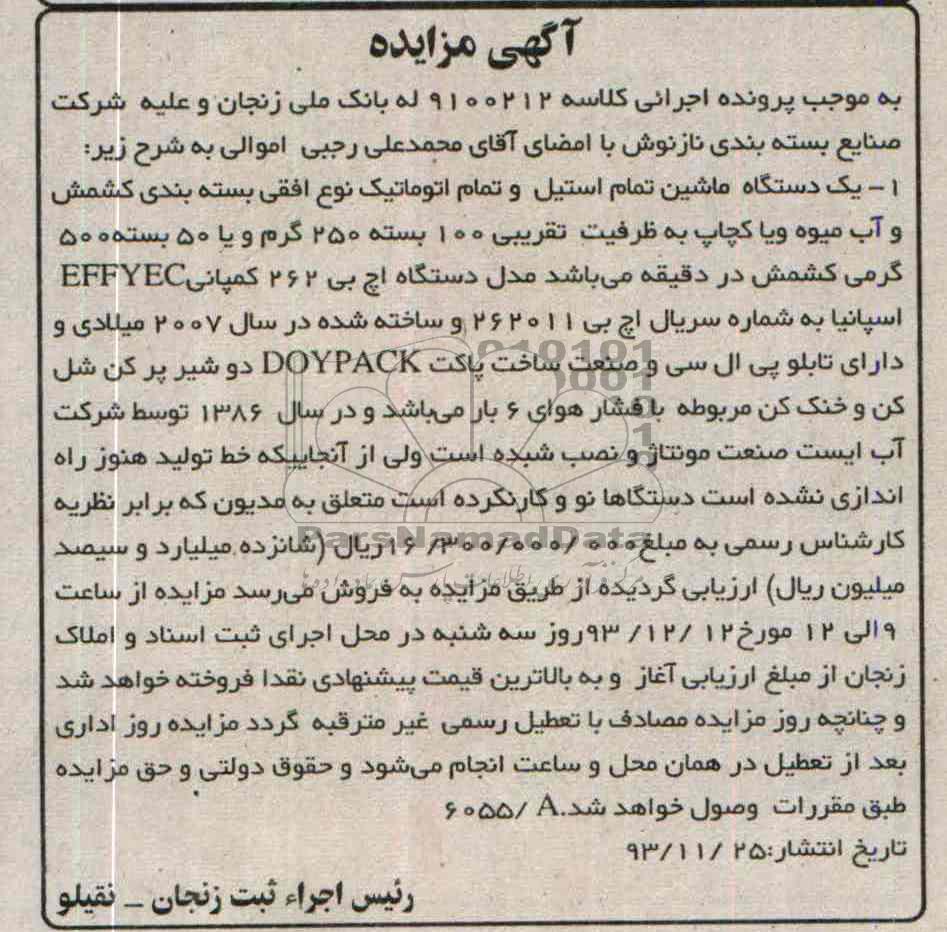 آگهی مزایده
به موجب پرونده اجرائی کلاسه ۹۱۰۰۲۱۲ له بانک ملی زنجان و علیه شرکت
صنایع بسته بندی نازنوش با امضای آقای محمدعلی رجبی اموالی به شرح زیر:
۱- یک دستگاه ماشین تمام استیل و تمام اتوماتیک نوع افقی بسته بندی کشمش
و آب میوه ویا کچاپ به ظرفیت تقریبی ۱۰۰ بسته ۲۵۰ گرم و یا ۵۰ بسته۵۰۰
گرمی کشمش در دقیقه می‌باشد مدل دستگاه اچ بی ۲۶۲ کمپانیEFFYEC
اسپانیا به شماره سریال اچ بی ۲۶۲۰۱۱ و ساخته شده در سال ۲۰۰۷ میلادی و
دارای تابلو پی ال سی و صنعت ساخت پاکت DOYPACK دو شیر پر کن شل
کن و خنک کن مربوطه با فشار هوای ۶ بار می‌باشد و در سال ۱۳۸۶ توسط شرکت
آب ایست صنعت مونتاژ و نصب شبده است ولی از آنجاییکه خط تولید هنوز راه
اندازی نشده است دستگاها نو و کارنکرده است متعلق به مدیون که برابر نظریه
کارشناس رسمی به مبلغ۰۰۰/۰۰۰/۳۰۰/ ۱۶ریال (شانزده میلیارد و سیصد
میلیون ریال) ارزیابی گردیده از طریق مزایده به فروش می‌رسد مزایده از ساعت
۹الی ۱۲ مورخ۱۲ /۱۲/ ۹۳روز سه شنبه در محل اجرای ثبت اسناد و املاک
زنجان از مبلغ ارزیابی آغاز و به بالاترین قیمت پیشنهادی نقدا فروخته خواهد شد
و چنانچه روز مزایده مصادف با تعطیل رسمی غیر مترقبه گردد مزایده روز اداری
بعد از تعطیل در همان محل و ساعت انجام می‌شود و حقوق دولتی و حق مزایده
طبق مقررات وصول خواهد شد.A /۶۰۵۵
تاریخ انتشار:۲۵ /۹۳/۱۱
رئیس اجراء ثبت زنجان _ نقیلو
ParsNamadData